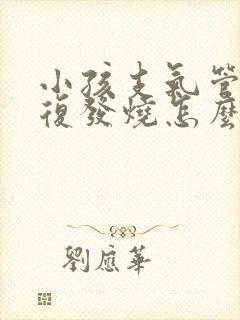 小孩支氣管
復發燒怎麼
劉應華